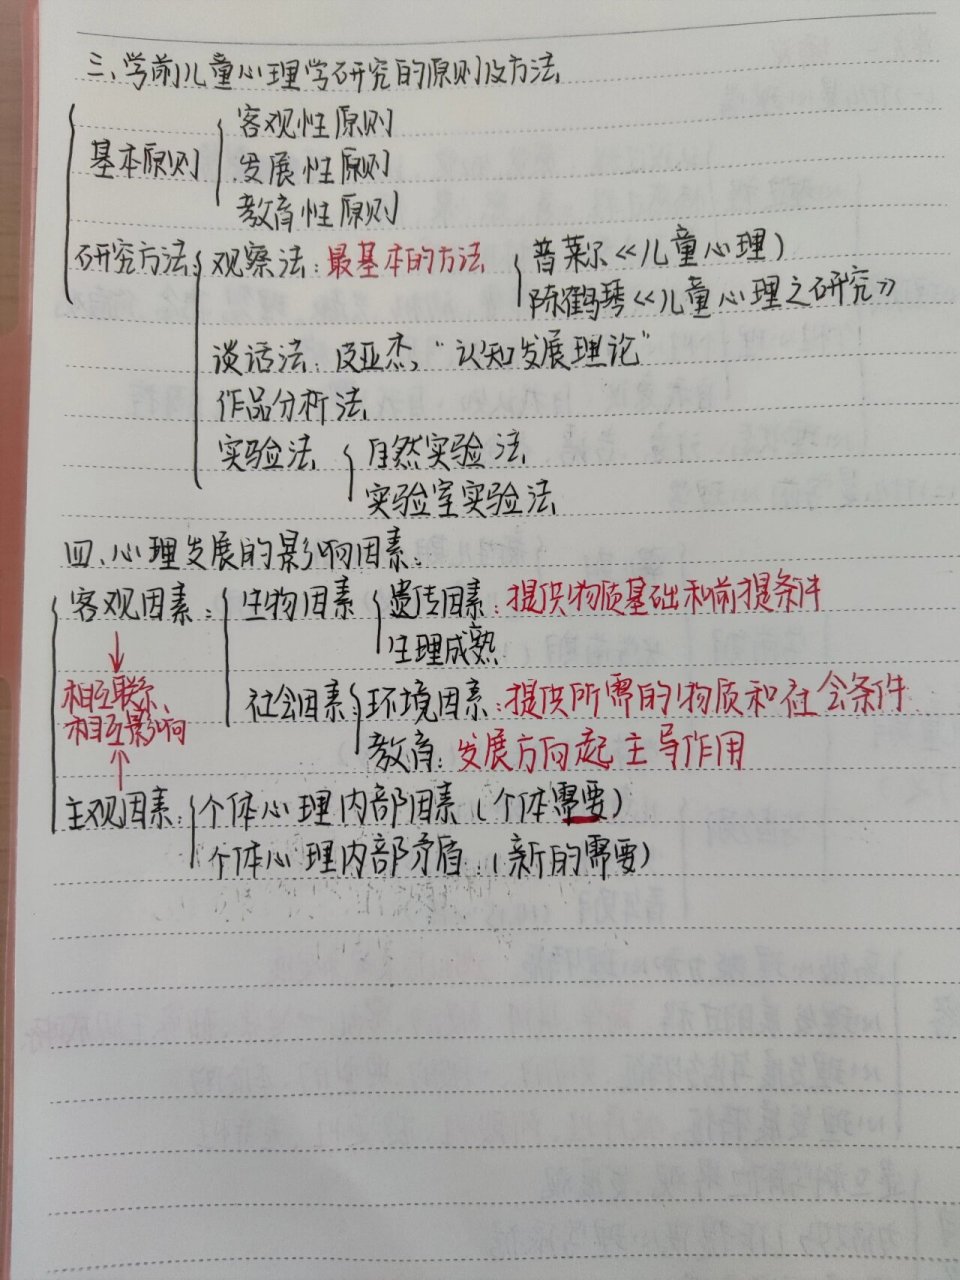 三、学前儿童心理学研究的原则及方法
客观性原则
基本原则
发展性原则
教育性原则
研究方法 观察法：最基本的方法 普莱尔《儿童心理）
陈鹤琴《儿童心理之研究》
谈话法：皮亚杰，“认知发展理论”
作品分析法
实验法 自然实验法
实验室实验法
四、心理发展的影响因素：
客观因素：生物因素 遗传因素：提供物质基础和前提条件
生理成熟
相互联系、
社会因素 环境因素：提供所需的物质和社会条件
相互影响
教育：发展方向起主导作用
主观因素：个体心理内部因素（个体需要）
个体心理内部矛盾：（新的需要）